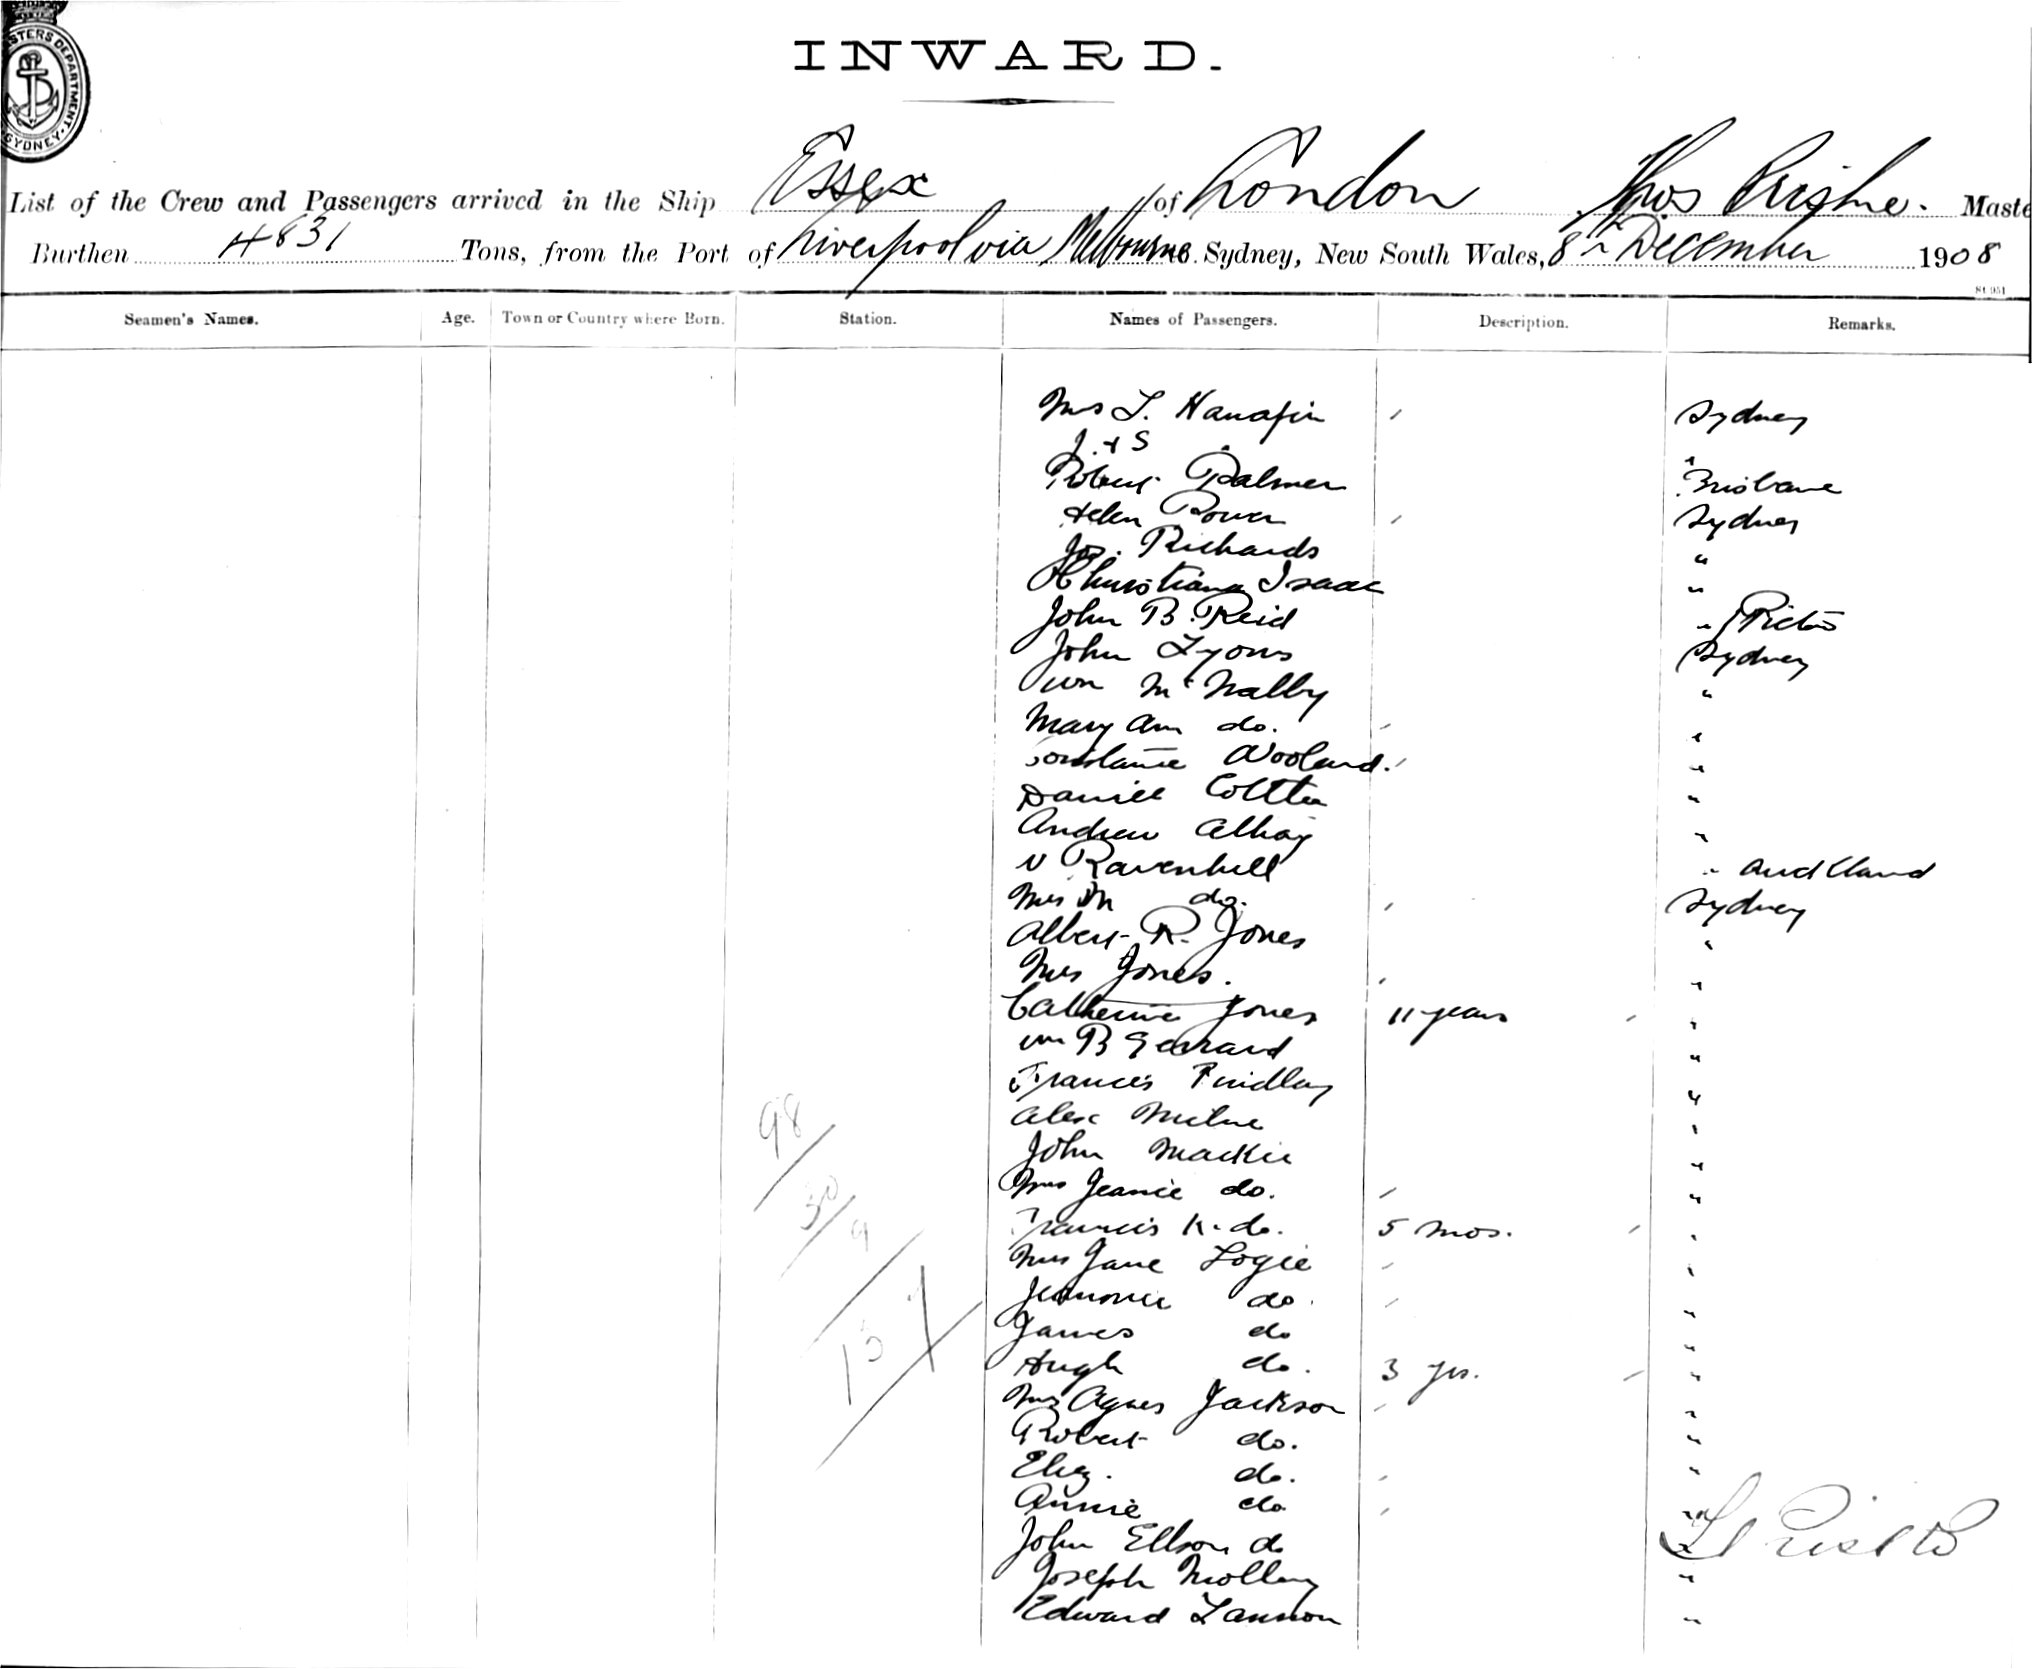 INWARD.
STERS DEPARTMENT. SYDNEY
List of the Crew and Passengers arrived in the Ship Essex of London Thos Master
Burthen 4831 Tons, from the Port of Liverpool via Melbourne Sydney, New South Wales, 8th December 1908
St 951
Seamen's Names. Age. Town or Country where Born. Station. Names of Passengers. Description. Remarks.
Mrs L. Hanafin ' Sydney
J. & S
Robert Palmer Brisbane
Helen Power ' Sydney
Jos. Richards "
Christiana Isaac "
John B. Reid "
John Lyons Sydney
Wm McNally "
Mary Ann do. ' "
Constance Wooland. ' "
Daniel "
Andrew "
N Ravenhill " Auckland
Mrs M do. ' Sydney
Albert R. Jones "
Mrs Jones. ' "
Catherine Jones 11 years ' "
Wm B Gerrard "
Francis Findlay "
Alex Milne "
John Mackie "
Mrs Jeanie do. ' "
Francis K. do. 5 mos. ' "
Mrs Jane Logie ' "
do. ' "
James do "
Hugh do. 3 yrs. ' "
Mrs Agnes Jackson ' "
Robert do. "
Eliz. do. ' "
Annie do ' "
John Ellson do "
Joseph Molloy "
Edward Lannon "
98
30
9
137